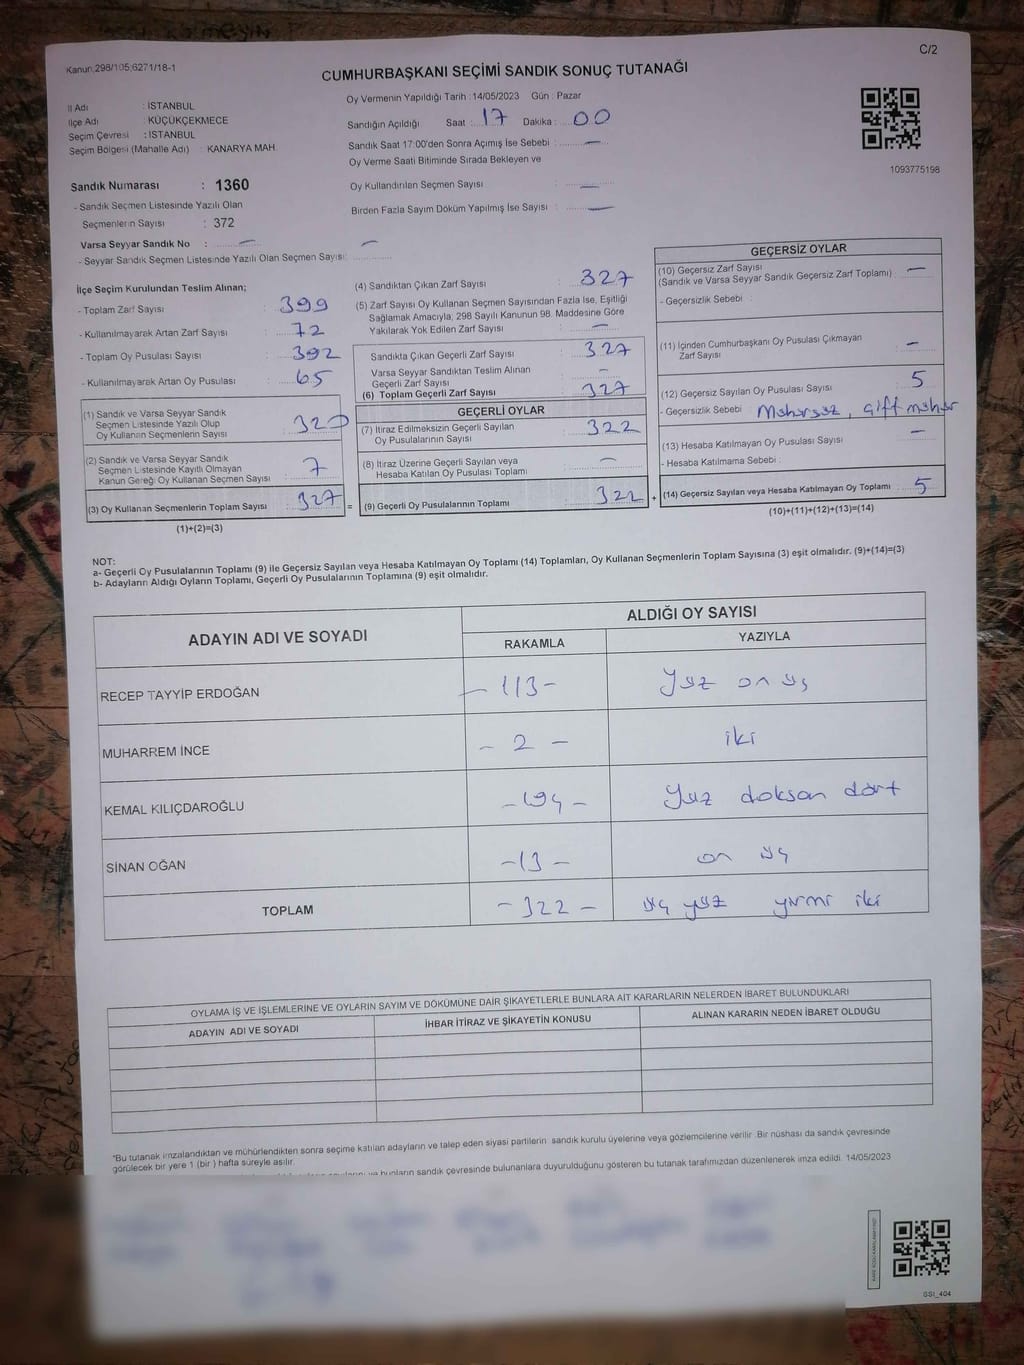 Kanun:298/105;6271/18-1
C/2
CUMHURBAŞKANI SEÇİMİ SANDIK SONUÇ TUTANAĞI
İl Adı : İSTANBUL
İlçe Adı : KÜÇÜKÇEKMECE
Seçim Çevresi : İSTANBUL
Seçim Bölgesi (Mahalle Adı) : KANARYA MAH.
Oy Vermenin Yapıldığı Tarih :14/05/2023 Gün : Pazar
Sandığın Açıldığı Saat : 17 Dakika : 00
Sandık Saat 17:00'den Sonra Açılmış İse Sebebi : —
Oy Verme Saati Bitiminde Sırada Bekleyen ve
Oy Kullandırılan Seçmen Sayısı : —
Birden Fazla Sayım Döküm Yapılmış İse Sayısı : —
1093775198
Sandık Numarası : 1360
- Sandık Seçmen Listesinde Yazılı Olan
Seçmenlerin Sayısı : 372
Varsa Seyyar Sandık No : —
- Seyyar Sandık Seçmen Listesinde Yazılı Olan Seçmen Sayısı: —
İlçe Seçim Kurulundan Teslim Alınan;
- Toplam Zarf Sayısı : 399
- Kullanılmayarak Artan Zarf Sayısı : 72
- Toplam Oy Pusulası Sayısı : 392
- Kullanılmayarak Artan Oy Pusulası : 65
(1) Sandık ve Varsa Seyyar Sandık
Seçmen Listesinde Yazılı Olup
Oy Kullanan Seçmenlerin Sayısı : 320
(2) Sandık ve Varsa Seyyar Sandık
Seçmen Listesinde Kayıtlı Olmayan
Kanun Gereği Oy Kullanan Seçmen Sayısı : 7
(3) Oy Kullanan Seçmenlerin Toplam Sayısı : 327
(1)+(2)=(3)
(4) Sandıktan Çıkan Zarf Sayısı : 327
(5) Zarf Sayısı Oy Kullanan Seçmen Sayısından Fazla İse, Eşitliği
Sağlamak Amacıyla; 298 Sayılı Kanunun 98. Maddesine Göre
Yakılarak Yok Edilen Zarf Sayısı : —
Sandıkta Çıkan Geçerli Zarf Sayısı : 327
Varsa Seyyar Sandıktan Teslim Alınan
Geçerli Zarf Sayısı : —
(6) Toplam Geçerli Zarf Sayısı : 327
GEÇERLİ OYLAR
(7) İtiraz Edilmeksizin Geçerli Sayılan
Oy Pusulalarının Sayısı : 322
(8) İtiraz Üzerine Geçerli Sayılan veya
Hesaba Katılan Oy Pusulası Toplamı : —
= (9) Geçerli Oy Pusulalarının Toplamı : 322
GEÇERSİZ OYLAR
(10) Geçersiz Zarf Sayısı : —
(Sandık ve Varsa Seyyar Sandık Geçersiz Zarf Toplamı)
- Geçersizlik Sebebi :
(11) İçinden Cumhurbaşkanı Oy Pusulası Çıkmayan
Zarf Sayısı : —
(12) Geçersiz Sayılan Oy Pusulası Sayısı : 5
- Geçersizlik Sebebi : Mühürsüz, çift mühür
(13) Hesaba Katılmayan Oy Pusulası Sayısı : —
- Hesaba Katılmama Sebebi :
+ (14) Geçersiz Sayılan veya Hesaba Katılmayan Oy Toplamı : 5
(10)+(11)+(12)+(13)=(14)
NOT:
a- Geçerli Oy Pusulalarının Toplamı (9) ile Geçersiz Sayılan veya Hesaba Katılmayan Oy Toplamı (14) Toplamları, Oy Kullanan Seçmenlerin Toplam Sayısına (3) eşit olmalıdır. (9)+(14)=(3)
b- Adayların Aldığı Oyların Toplamı, Geçerli Oy Pusulalarının Toplamına (9) eşit olmalıdır.
ADAYIN ADI VE SOYADI
ALDIĞI OY SAYISI
RAKAMLA YAZIYLA
RECEP TAYYİP ERDOĞAN - 113 - Yüz on üç
MUHARREM İNCE - 2 - iki
KEMAL KILIÇDAROĞLU - 194 - Yüz doksan dört
SİNAN OĞAN - 13 - on üç
TOPLAM - 322 - üç yüz yirmi iki
OYLAMA İŞ VE İŞLEMLERİNE VE OYLARIN SAYIM VE DÖKÜMÜNE DAİR ŞİKAYETLERLE BUNLARA AİT KARARLARIN NELERDEN İBARET BULUNDUKLARI
ADAYIN ADI VE SOYADI İHBAR İTİRAZ VE ŞİKAYETİN KONUSU ALINAN KARARIN NEDEN İBARET OLDUĞU
*Bu tutanak imzalandıktan ve mühürlendikten sonra seçime katılan adayların ve talep eden siyasi partilerin sandık kurulu üyelerine veya gözlemcilerine verilir. Bir nüshası da sandık çevresinde
görülecek bir yere 1 (bir) hafta süreyle asılır.
bunların sandık çevresinde bulunanlara duyurulduğunu gösteren bu tutanak tarafımızdan düzenlenerek imza edildi. 14/05/2023
SSI_404